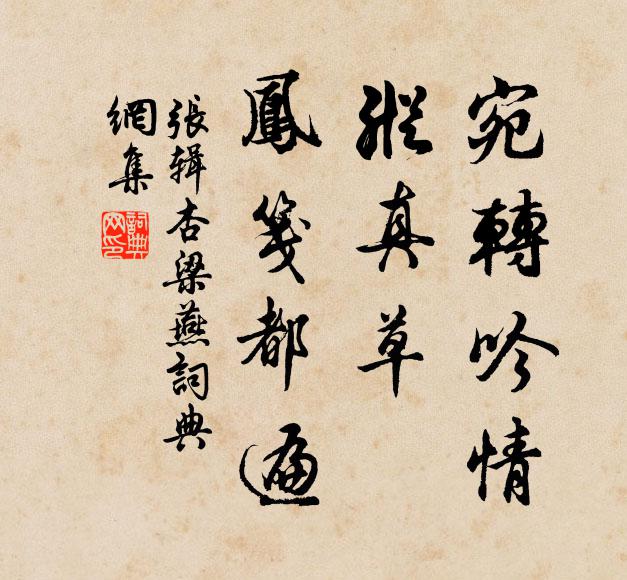 宛轉吟情
縱真草
鳳箋都遍
張辑杏梁燕詞典
網集
詞典网印